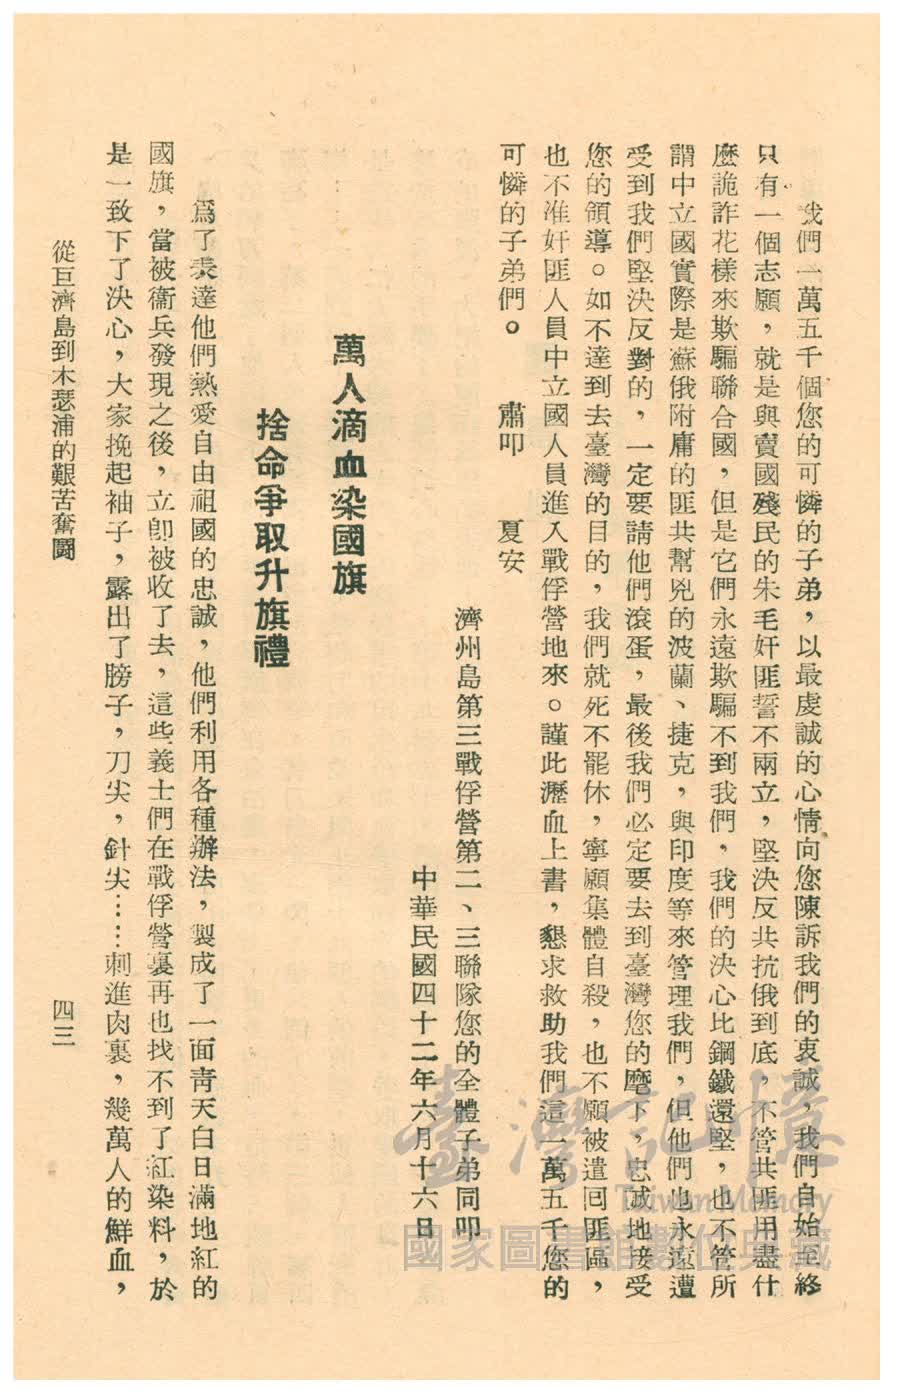 我們一萬五千個您的可憐的子弟，以最虔誠的心情向您陳訴我們的衷誠，我們自始至終
只有一個志願，就是與賣國殘民的朱毛奸匪誓不兩立，堅決反共抗俄到底，不管共匪用盡什
麼詭詐花樣來欺騙聯合國，但是它們永遠欺騙不到我們，我們的決心比鋼鐵還堅，也不管所
謂中立國實際是蘇俄附庸的匪共幫兇的波蘭、捷克，與印度等來管理我們，但他們也永遠遭
受到我們堅決反對的，一定要請他們滾蛋，最後我們必定要去到臺灣您的麾下，忠誠地接受
您的領導。如不達到去臺灣的目的，我們就死不罷休，寧願集體自殺，也不願被遣回匪區，
也不准奸匪人員中立國人員進入戰俘營地來。謹此瀝血上書，懇求救助我們這一萬五千您的
可憐的子弟們。　肅叩　夏安
濟州島第三戰俘營第二、三聯隊您的全體子弟同叩
中華民國四十二年六月十六日
萬人滴血染國旗
捨命爭取升旗禮
爲了表達他們熱愛自由祖國的忠誠，他們利用各種辦法，製成了一面靑天白日滿地紅的
國旗，當被衞兵發現之後，立卽被收了去，這些義士們在戰俘營裏再也找不到了紅染料，於
是一致下了決心，大家挽起袖子，露出了膀子，刀尖，針尖……刺進肉裏，幾萬人的鮮血，
從巨濟島到木瑟浦的艱苦奮鬪
四三
臺灣記憶
Taiwan Memory
國家圖書館數位典藏